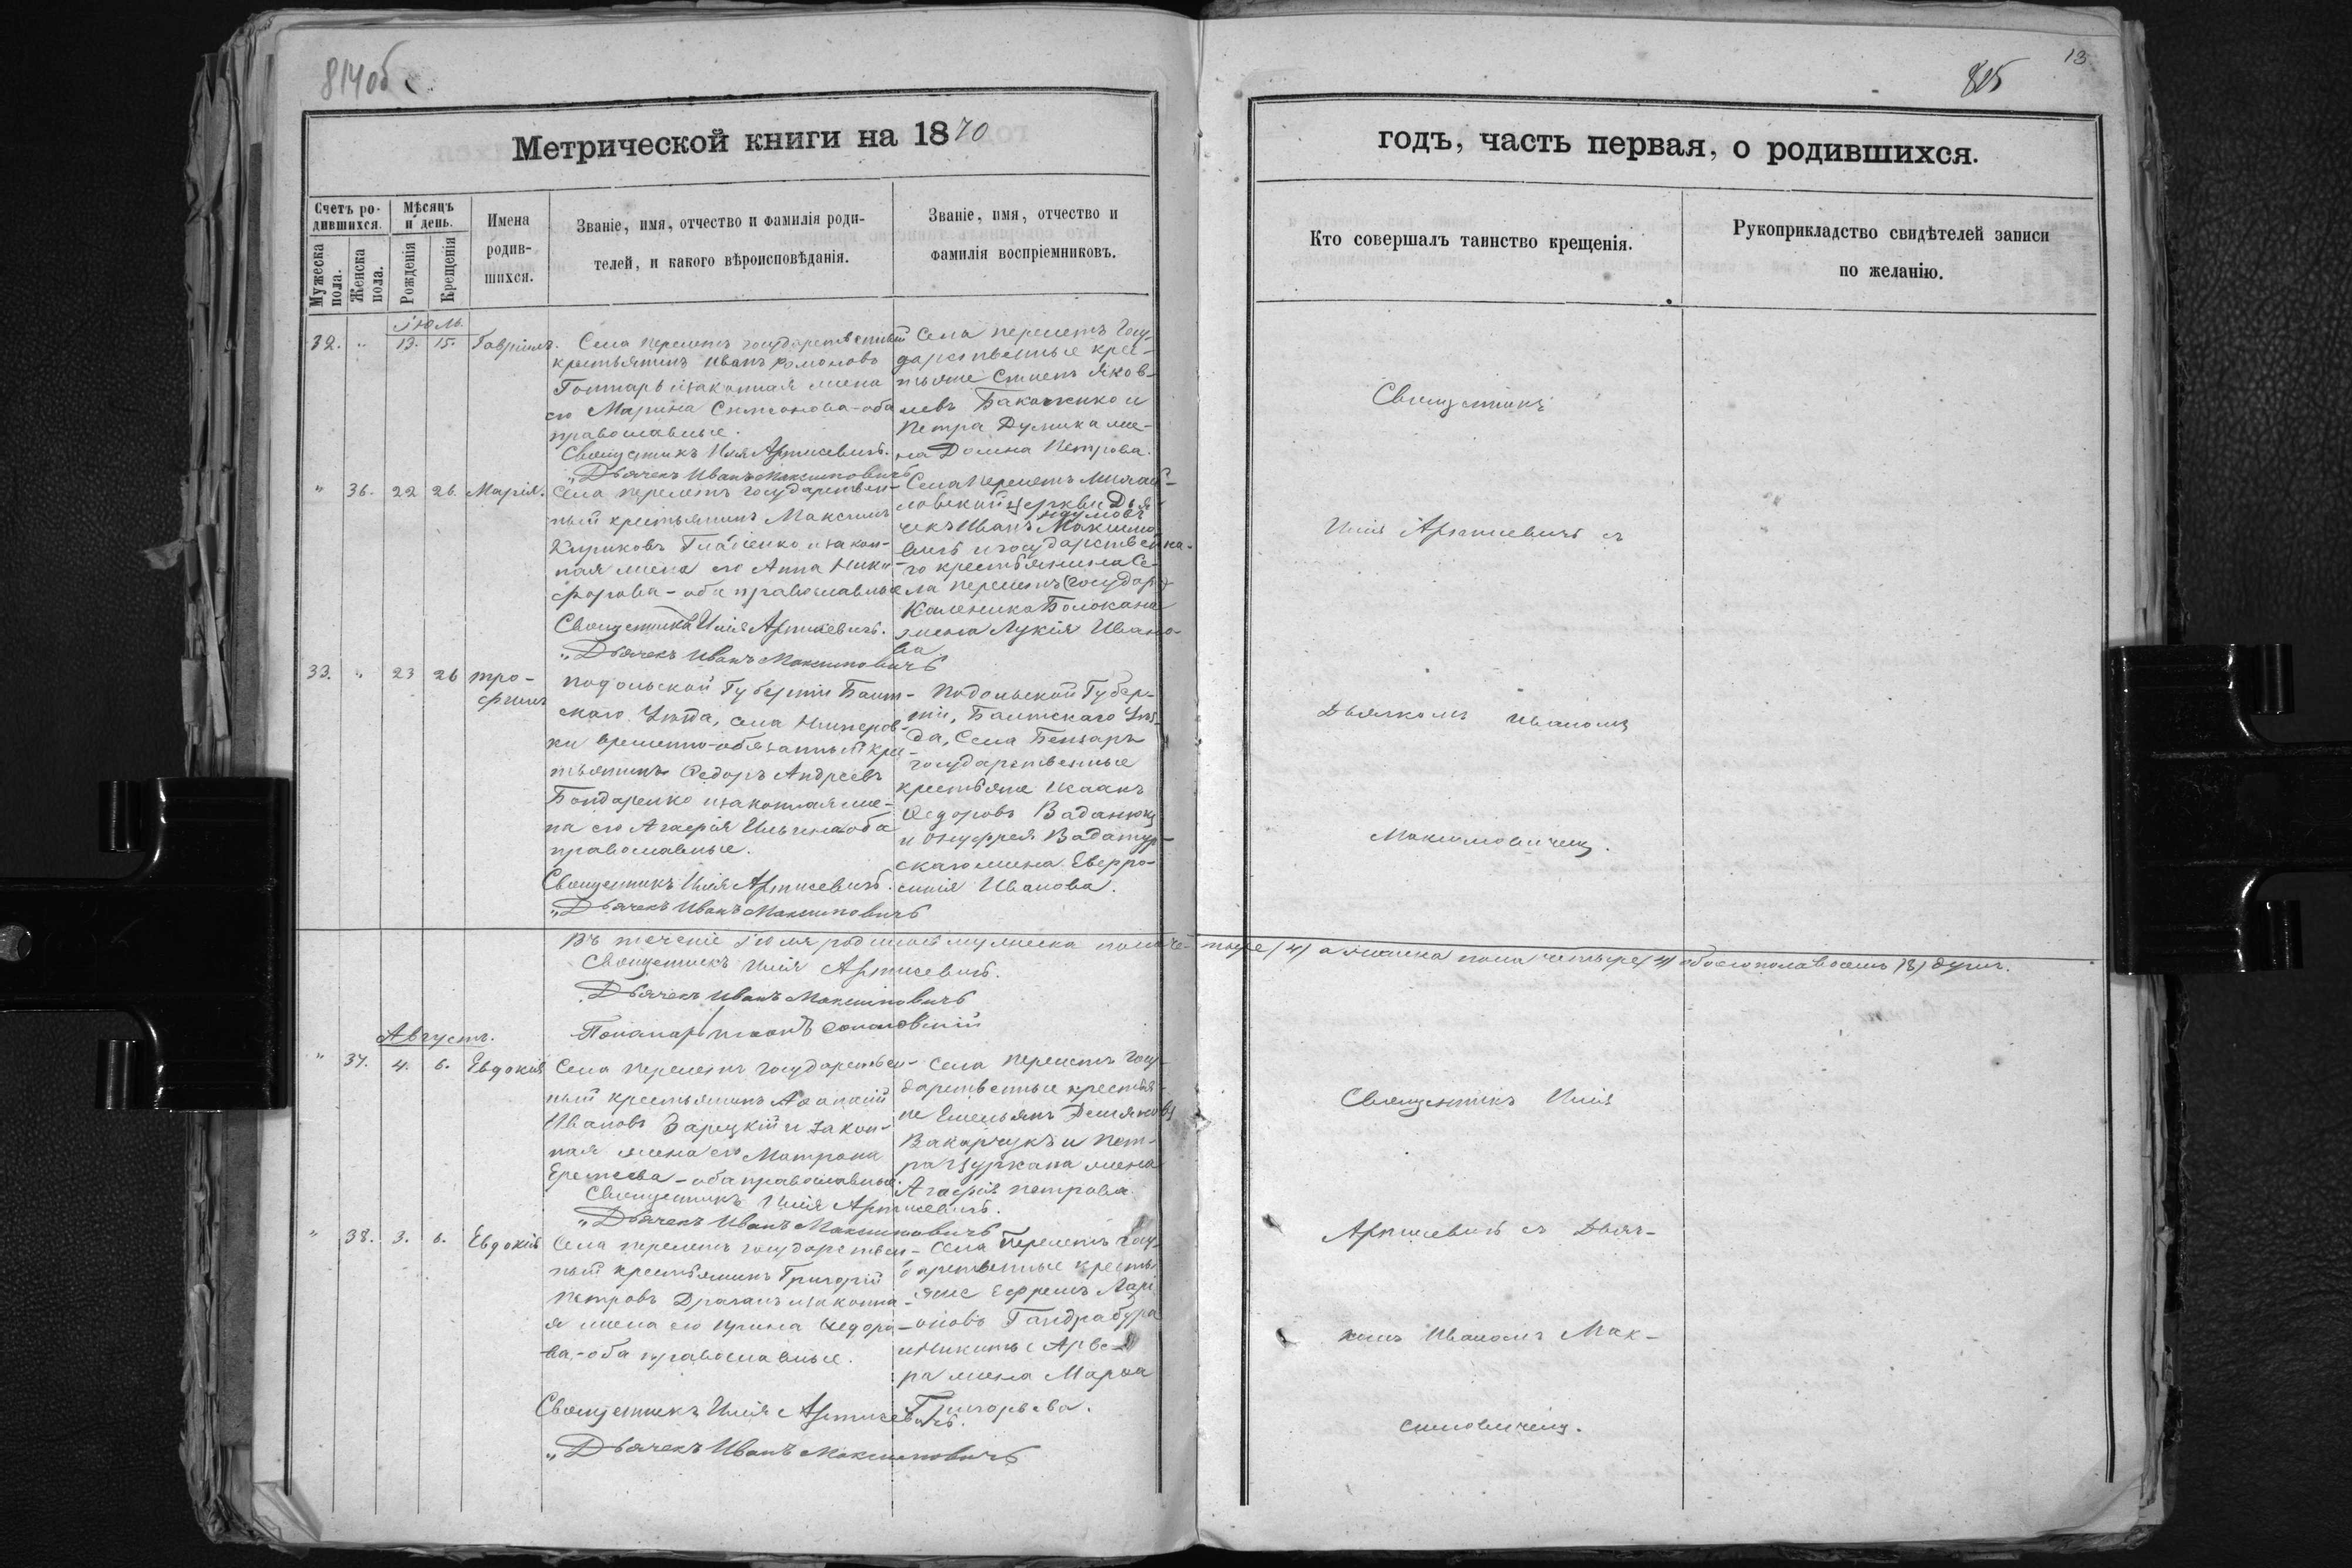 814об
Метрической книги на 1870
Счетъ ро-
дившихся.
Мѣсяцъ
и день.
Имена
родив-
шихся.
Званіе, имя, отчество и фамилія роди-
телей, и какого вѣроисповѣданія.
Званіе, имя, отчество и
фамилія воспріемниковъ.
Мужеска
пола.
Женска
пола.
Рожденія
Крещенія
Іюль.
32. " 13. 15. Гавріилъ.
Села Перелетъ государственный
крестьянинъ Иванъ
Гончаръ и законная жена
его Марина Симеонова - оба
православные.
Священникъ Илія Артисевичъ.
"Дьячекъ Иванъ Максимовичъ
Села Перелетъ Госу-
дарственные крес-
тьяне Яков-
левъ и
Петра же-
на Домна Петрова.
" 36. 22 26. Марія.
Села Перелетъ государствен-
ный крестьянинъ Максимъ
Кириковъ и закон-
ная жена его Анна Ники-
форова - оба православные
Священникъ Илія Артисевичъ.
"Дьячекъ Иванъ Максимовичъ
Села Перелетъ Михай-
ловской церкви Дья-
чекъ Иванъ Максимо-
вичъ и государственна-
го крестьянина Се-
ла Перелетъ (государ)
Каленика Болокана
жена Лукія Ивано-
ва
33. " 23 26 Тро-
фимъ
Подольской Губерніи Балт-
скаго Уѣзда, села
ки временно-обязанный крес-
тьянинъ Ѳедоръ Андреевъ
Бондаренко и законная же-
на его Агафія Ильина оба
православные.
Священникъ Илія Артисевичъ.
"Дьячекъ Иванъ Максимовичъ
Подольской Губер-
ніи, Балтскаго Уѣз-
да, Села Бензаръ
государственные
крестьяне Исаакъ
Ѳедоровъ Ваданюкъ
и Онуфрея Вадатур-
скаго жена Евфро-
синія Иванова.
Въ теченіе Іюля родилось мужеска пола че- тыре (4) а женска пола четыре (4) обоего пола восемь (8) душъ.
Священникъ Илія Артисевичъ.
Дьячекъ Иванъ Максимовичъ
Понамарь
Августъ.
" 37. 4. 6. Евдокія
Села Перелетъ государствен-
ный крестьянинъ
Ивановъ Зарецкій и закон-
ная жена его Матрона
- оба православные.
Священникъ Илія Артисевичъ.
"Дьячекъ Иванъ Максимовичъ
Села Перелетъ Госу-
дарственные крестья-
не Емельянъ Демяновъ
Вакарчукъ и Пет-
ра Цуркана жена
Агафія Петрова.
" 38. 3. 6. Евдокія
Села Перелетъ государствен-
ный крестьянинъ Григорій
Петровъ Драганъ и законна-
я жена его Ирина Ѳедоро-
ва, - оба православные.
Священникъ Илія Артисевичъ.
"Дьячекъ Иванъ Максимовичъ
Села Перелетъ Госу-
дарственные кресть-
яне Ефремъ Лари-
оновъ Гандрабура
и Никиты
ра жена Марѳа
Григорьева.
13
815
годъ, часть первая, о родившихся.
Кто совершалъ таинство крещенія.
Рукоприкладство свидѣтелей записи
по желанію.
Священникъ
Илія Артисевичъ съ
Дьячкомъ Иваномъ
Максимовичемъ.
Священникъ Илія
Артисевичъ съ Дьяч-
комъ Иваномъ Мак-
симовичемъ.